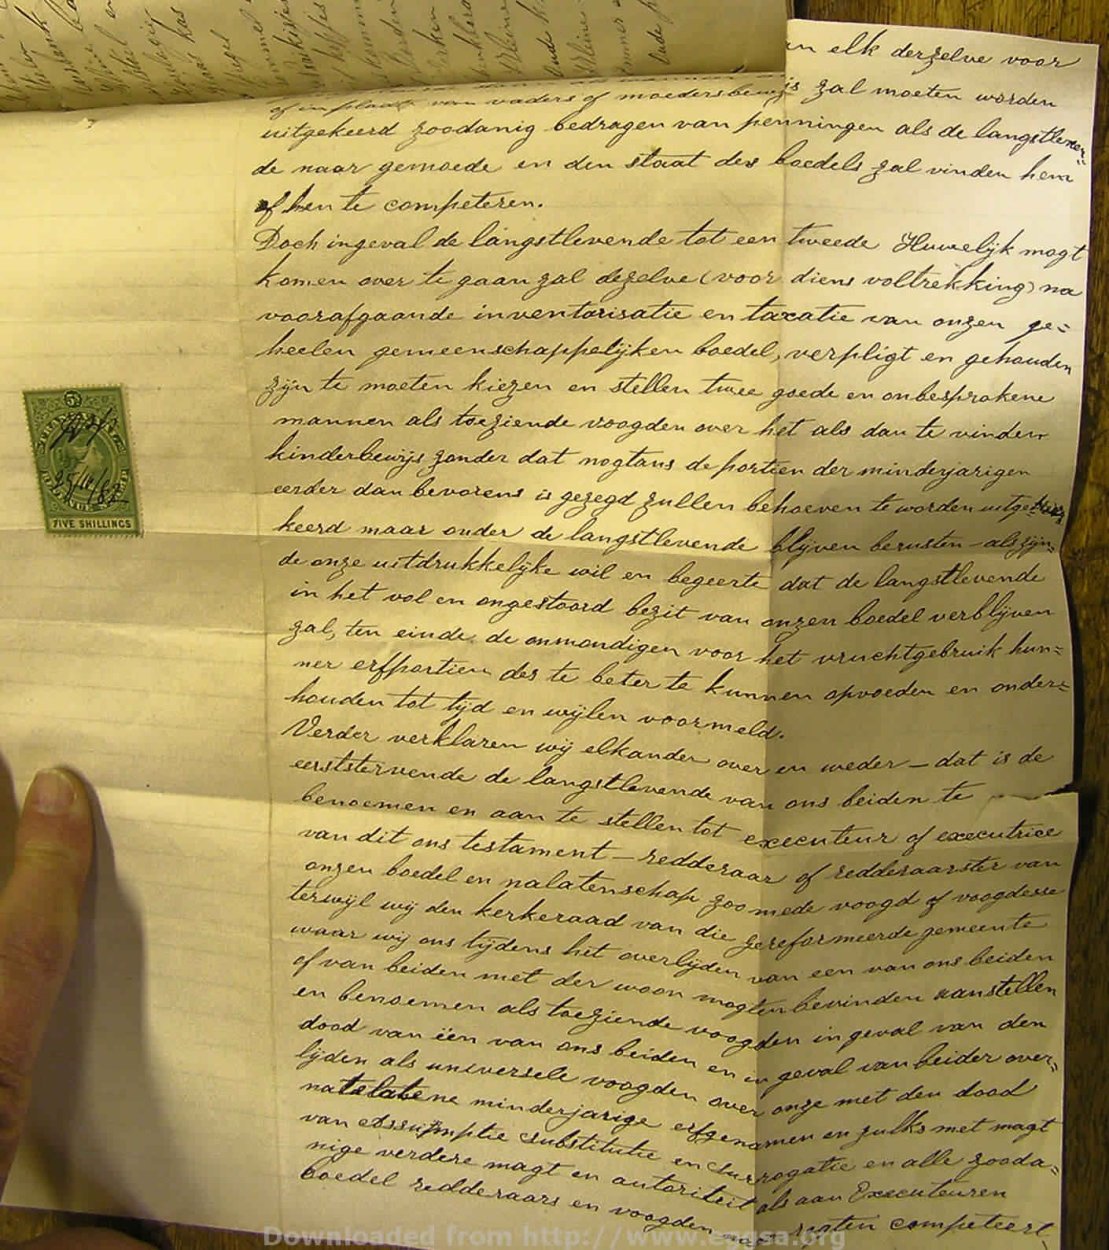 en elk derzelve voor
of in plaats van vaders of moedersbewijs zal moeten worden
uitgekeerd zoodanig bedragen van penningen als de langstleven=
de naar gemoede en den staat des boedels zal vinden hem
of hen te competeren.
Doch ingeval de langstlevende tot een tweede Huwelijk mogt
komen over te gaan zal dezelve (voor diens voltrekking) na
voorafgaande inventarisatie en taxatie van onzen ge=
heelen gemeenschappelijken boedel, verpligt en gehouden
zijn te moeten kiezen en stellen twee goede en onbesprokene
mannen als toeziende voogden over het als dan te vinden
kinderbewijs zonder dat nogtans de portien der minderjarigen
eerder dan bevorens is gezegd zullen behoeven te worden uitge
keerd maar onder de langstlevende blijven berusten - als zijn=
de onze uitdrukkelijke wil en begeerte dat de langstlevende
in het vol en ongestoord bezit van onzen boedel verblijven
zal, ten einde de onmondigen voor het vruchtgebruik hun=
ner erfportien des te beter te kunnen opvoeden en onder=
houden tot tijd en wijlen voormeld.
Verder verklaren wij elkander over en weder — dat is de
eerststervende de langstlevende van ons beiden te
benoemen en aan te stellen tot executeur of executrice
van dit ons testament — redderaar of redderaarster van
onzen boedel en nalatenschap zoo mede voogd of voogdesse
terwijl wij den kerkeraad van die gereformeerde gemeente
waar wij ons tijdens het overlijden van een van ons beiden
of van beiden met der woon mogten bevinden aanstellen
en benoemen als toeziende voogden in geval van den
dood van één van ons beiden en in geval van beider over=
lijden als universele voogden over onze met den dood
natelatene minderjarige erfgenamen en zulks met magt
van Assumptie substitutie en Surrogatie en alle zooda=
nige verdere magt en autoriteit als aan Executeuren
boedel redderaars en voogden regten competeert
FIVE SHILLINGS
Downloaded from http://www.eggsa.org